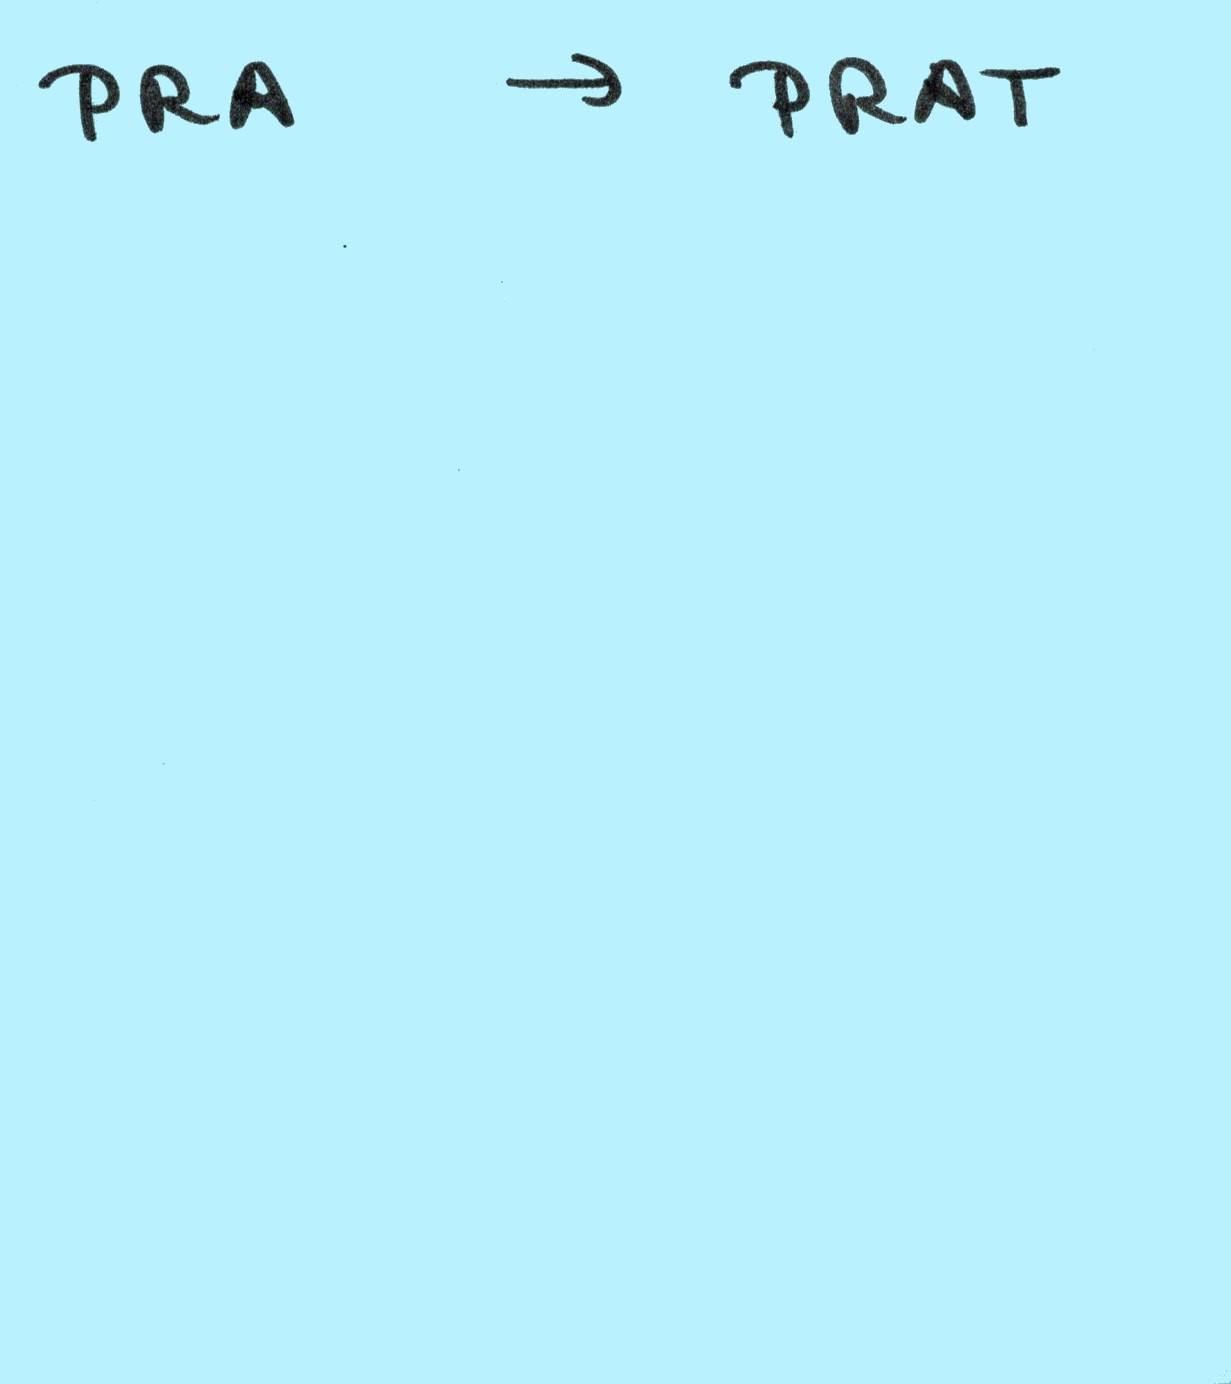 PRA → PRAT